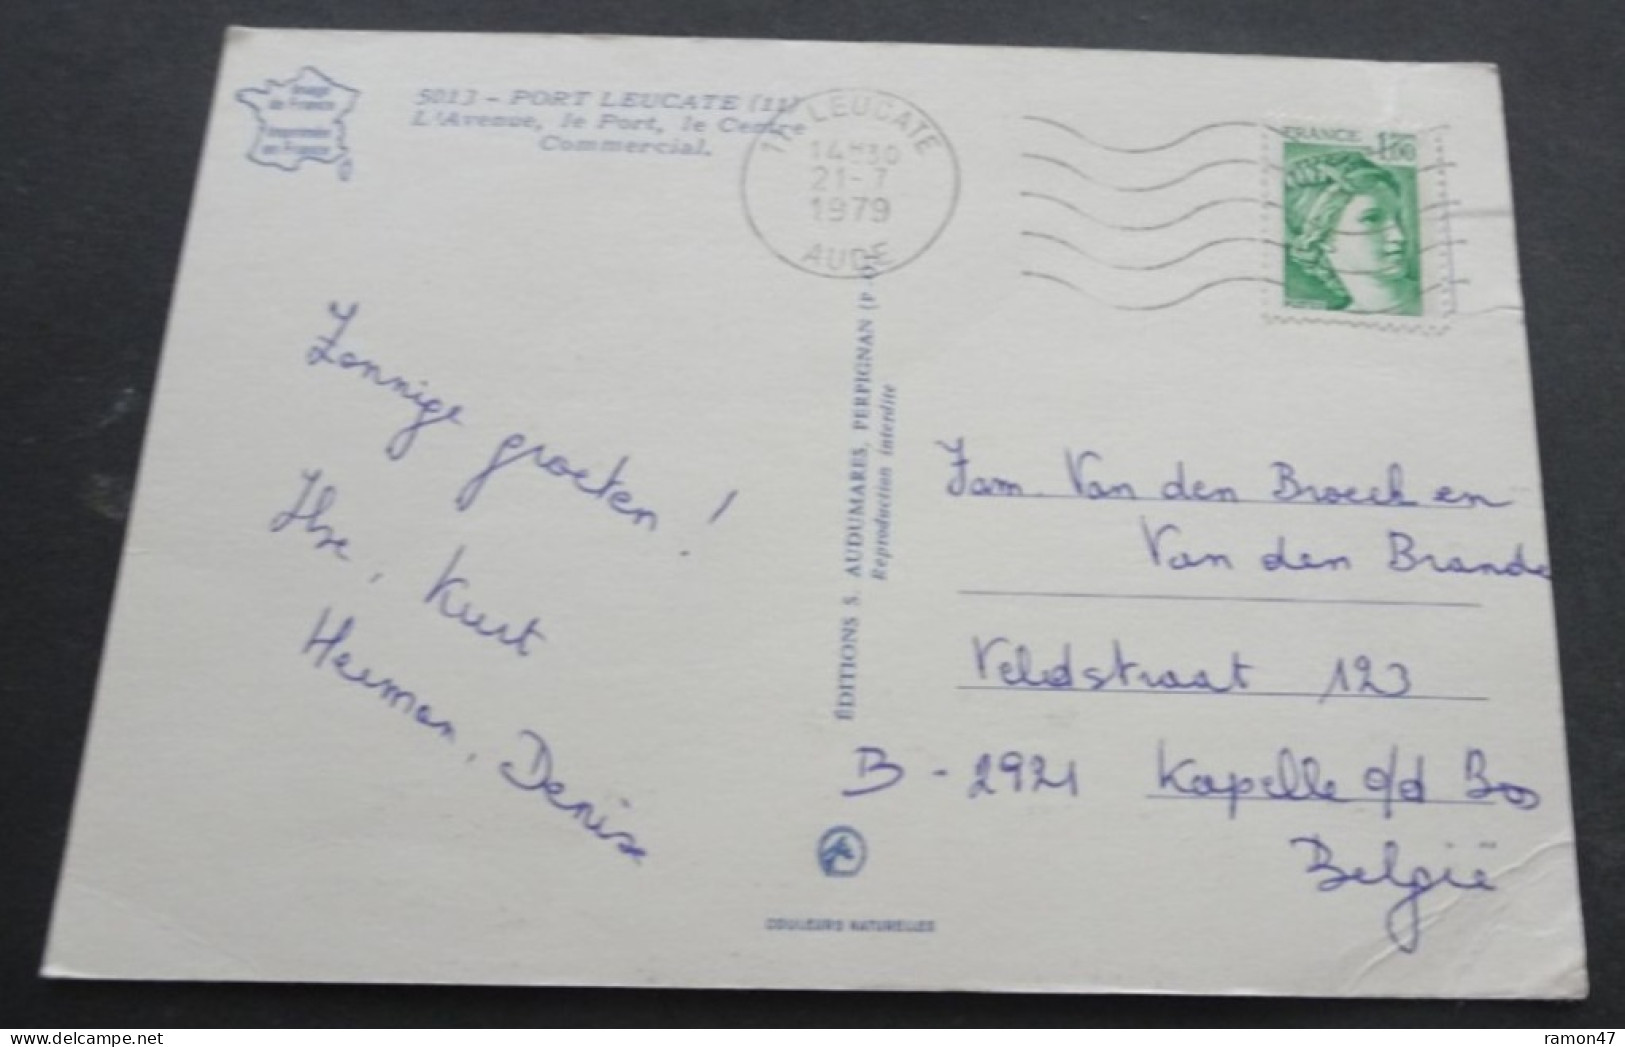 Image
de France
Imprimée
en France
5013 - PORT LEUCATE (11)
L'Avenue, le Port, le Centre
Commercial.
11 LEUCATE
14H30
21-7
1979
AUDE
FRANCE 1,00
Zonnige groeten!
Ilse, Kurt
Herman, Denise
ÉDITIONS S. AUDUMARES, PERPIGNAN (P.-O.)
Reproduction interdite
Fam. Van den Broeck en
Van den Brande
Veldstraat 123
B - 2921 Kapelle o/d Bos
België
COULEURS NATURELLES
ramon47